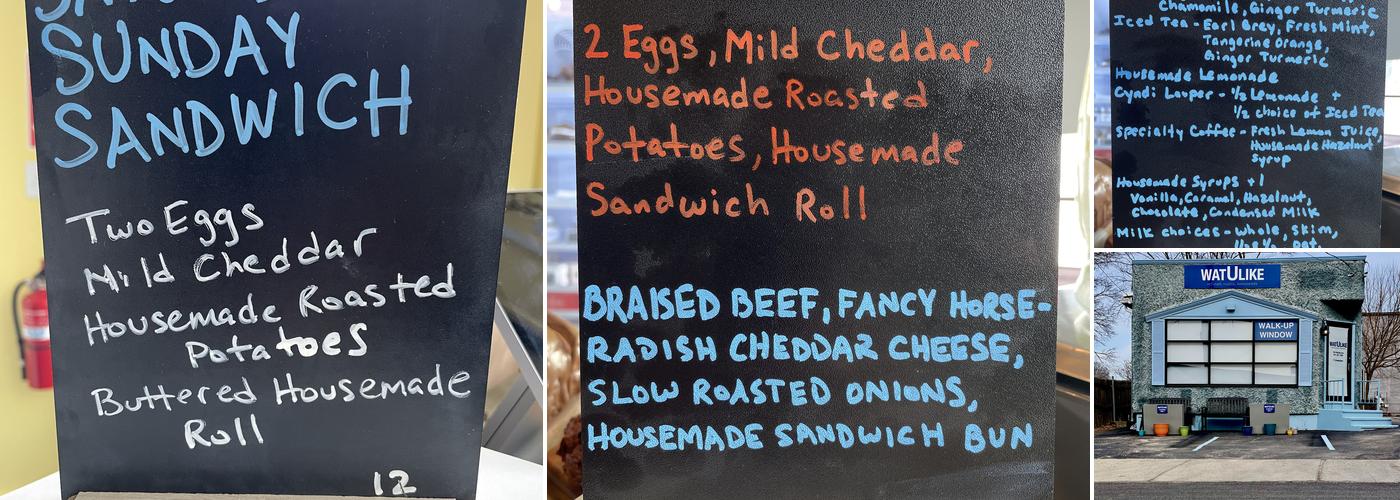 SUNDAY
SANDWICH
Two Eggs
Mild Cheddar
Housemade Roasted
Potatoes
Buttered Housemade
Roll
12
2 Eggs, Mild Cheddar,
Housemade Roasted
Potatoes, Housemade
Sandwich Roll
BRAISED BEEF, FANCY HORSE-
RADISH CHEDDAR CHEESE,
SLOW ROASTED ONIONS,
HOUSEMADE SANDWICH BUN
Chamomile, Ginger Turmeric
Iced Tea - Earl Grey, Fresh Mint,
Tangerine Orange,
Ginger Turmeric
Housemade Lemonade
Cyndi Lauper - 1/2 Lemonade +
1/2 choice of Iced Tea
Specialty Coffee - Fresh Lemon Juice,
Housemade Hazelnut
Syrup
Housemade Syrups +1
Vanilla, Caramel, Hazelnut,
Chocolate, Condensed Milk
Milk choices - Whole, Skim,
WATULIKE
WALK-UP
WINDOW
WATULIKE